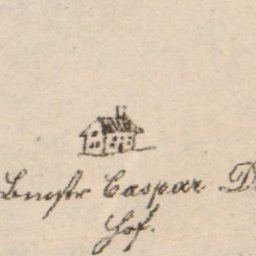 Bmstr Caspar D
Hof.